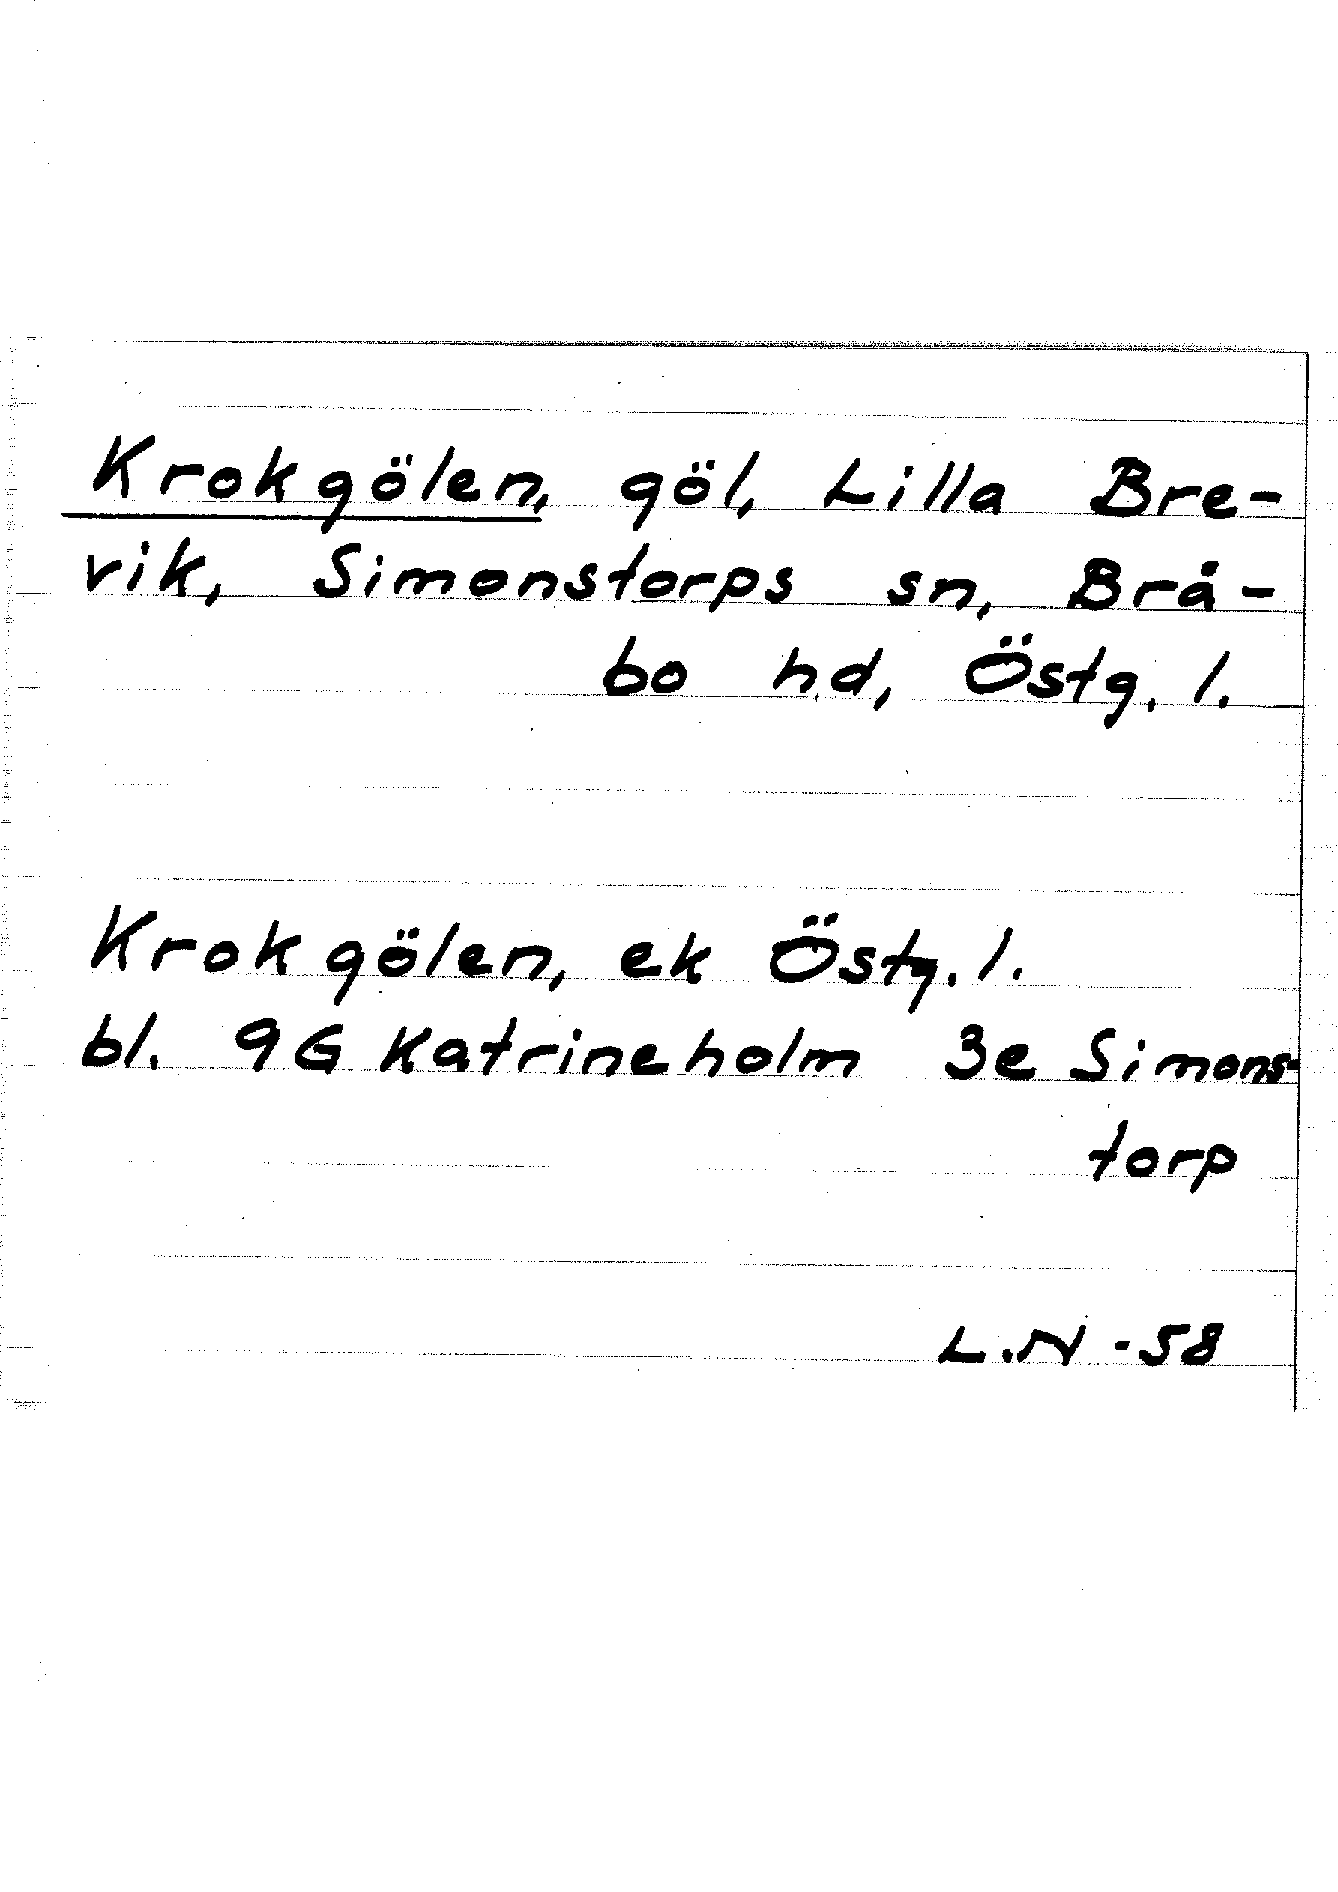 Krokgölen, göl, Lilla Bre-
vik, Simonstorps sn, Brå-
bo hd, Östg. l.
Krokgölen, ek Östg. l.
bl. 9G Katrineholm 3e Simons-
torp
L.N -58